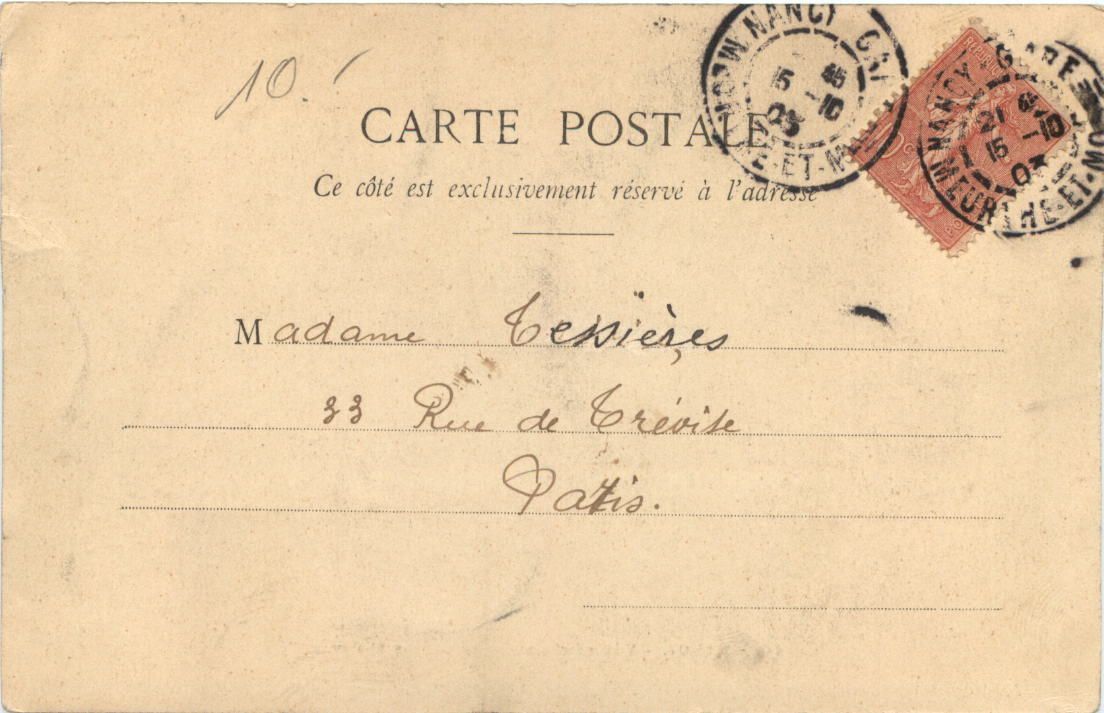 10.
CARTE POSTALE
Ce côté est exclusivement réservé à l'adresse
Madame Tessières
33 Rue de Trévise
Paris.
NANCY GARE
MEURTHE-ET-MO
21
15 -10
03
NANCY
ET-M
15
10
03
REPUBLIQUE